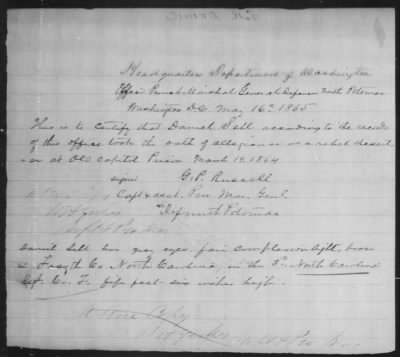 Headquarters Department of Washington
Office Provost Marshal General Defences North Potomac
Washington D.C. May 16th 1865
This is to certify that Daniel Sell according to the records
of this office took the oath of allegiance as a rebel desert-
er at Old Capitol Prison March 19. 1864
signed G. P. Russell
Capt & asst. Pro. Mar. Genl.
Def. north Potomac
Daniel Sell has gray eyes, fair complexion light, born
in Forsyth Co. North Carolina, in the North Carolina
Co. five feet six inches high.
A true Copy